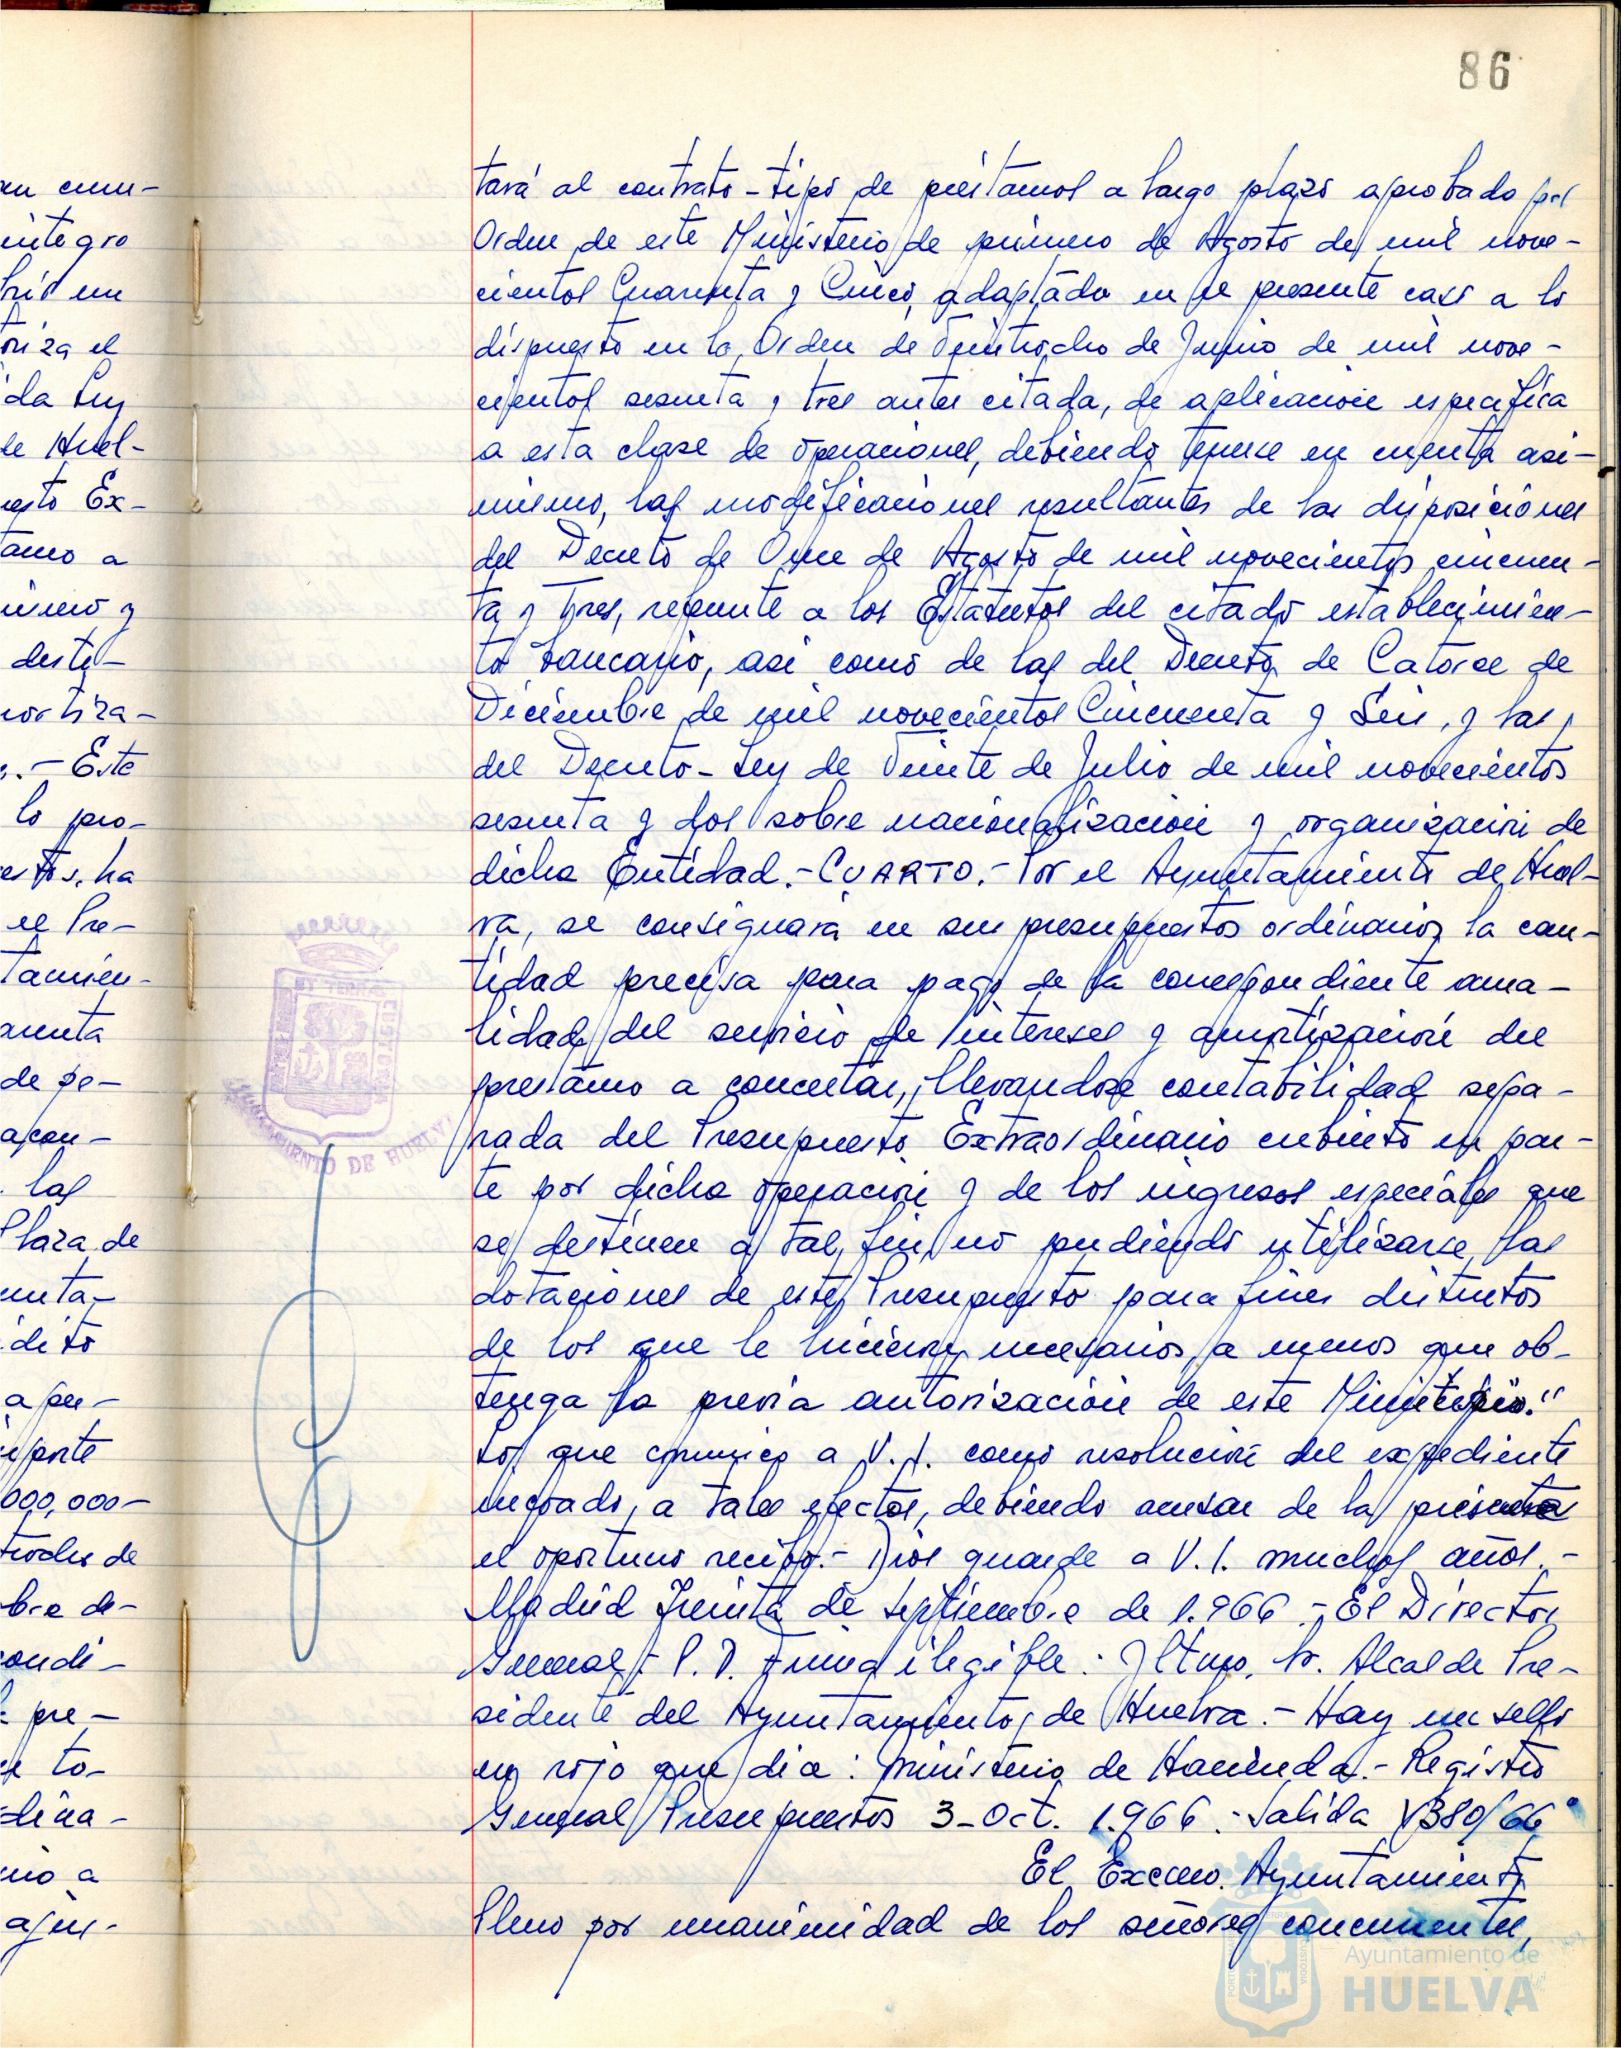 86
tará al contrato-tipo de préstamos a largo plazo aprobado por
Orden de este Ministerio de primero de Agosto de mil nove-
cientos Cuarenta y Cinco, adaptado en el presente caso a lo
dispuesto en la Orden de Veintiocho de Junio de mil nove-
cientos sesenta y tres antes citada, de aplicación específica
a esta clase de operaciones, debiendo tenerse en cuenta asi-
mismo, las modificaciones resultantes de las disposiciones
del Decreto de Once de Agosto de mil novecientos cincuen-
ta y Tres, referente a los Estatutos del citado establecimien-
to bancario, asi como de las del Decreto de Catorce de
Diciembre de mil novecientos Cincuenta y Seis, y las
del Decreto-Ley de Veinte de Julio de mil novecientos
sesenta y dos sobre nacionalización y organización de
dicha Entidad.- CUARTO.- Por el Ayuntamiento de Huel-
va, se consignará en sus presupuestos ordinarios la can-
tidad precisa para pago de la correspondiente anua-
lidad del servicio de intereses y amortización del
prestamo a concertar, llevandose contabilidad sepa-
rada del Presupuesto Extraordinario cubierto en par-
te por dicha operación y de los ingresos especiales que
se destinen a tal fin, no pudiendo utilizarse las
dotaciones de este Presupuesto para fines distintos
de los que le hicieron necesarios, a menos que ob-
tenga la previa autorización de este Ministerio."
Lo que comunico a V.I. como resolución del expediente
incoado, a tales efectos, debiendo acusar de la presente
el oportuno recibo.- Dios guarde a V.I. muchos años.-
Madrid Treinta de Septiembre de 1.966.- El Director
General.- P.D. Firma ilegible.- Iltmo. Sr. Alcalde Pre-
sidente del Ayuntamiento de Huelva.- Hay un sello
en rojo que dice: Ministerio de Hacienda.- Registro
General Presupuestos 3-Oct. 1.966.- Salida
El Excmo. Ayuntamiento
Pleno por unanimidad de los señores concurrentes,
AYUNTAMIENTO DE HUELVA
Ayuntamiento de
HUELVA
en cum-
integro
un
oriza el
da Ley
de Huel-
esto Ex-
tamo a
y
desti-
mortiza-
.- Este
lo pro-
ha
el Pre-
tamien-
arenta
de pe-
acon-
las
Plaza de
dito
a per-
000,000-
de
bre de-
condi-
pre-
to-
a
ajus-